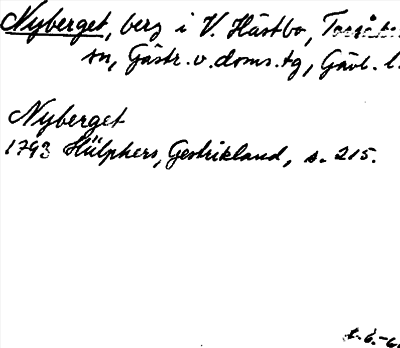 Nyberget, berg i V. Hästbo, Torsåker
sn, Gästr. v. doms.tg, Gävl. l.
Nyberget
1793 Hülphers, Gestrikland, s. 215.